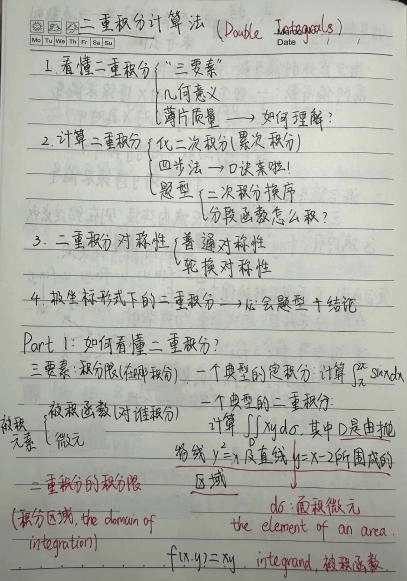 二重积分计算法 (Double Integrals)
Mo Tu We Th Fr Sa Su
Date / /
1. 看懂二重积分 { "三要素"
几何意义
薄片质量 → 如何理解?
2. 计算二重积分 { 化二次积分(累次积分)
四步法 → 口诀来啦!
题型 { 二次积分换序
分段函数怎么积?
3. 二重积分对称性 { 普通对称性
轮换对称性
4. 极坐标形式下的二重积分 → 记会题型+结论
Part 1: 如何看懂二重积分?
三要素: 积分限(在哪积分). 一个典型的定积分: 计算 ∫ sinxdx
被积元素 { 被积函数(对谁积分)
微元
一个典型的二重积分:
计算 ∬_D xydσ. 其中D是由抛
物线 y²=x 及直线 y=x-2所围成的
区域
二重积分的积分限
(积分区域, the domain of
integration)
dσ: 面积微元
the element of an area.
f(x.y)=xy. integrand, 被积函数